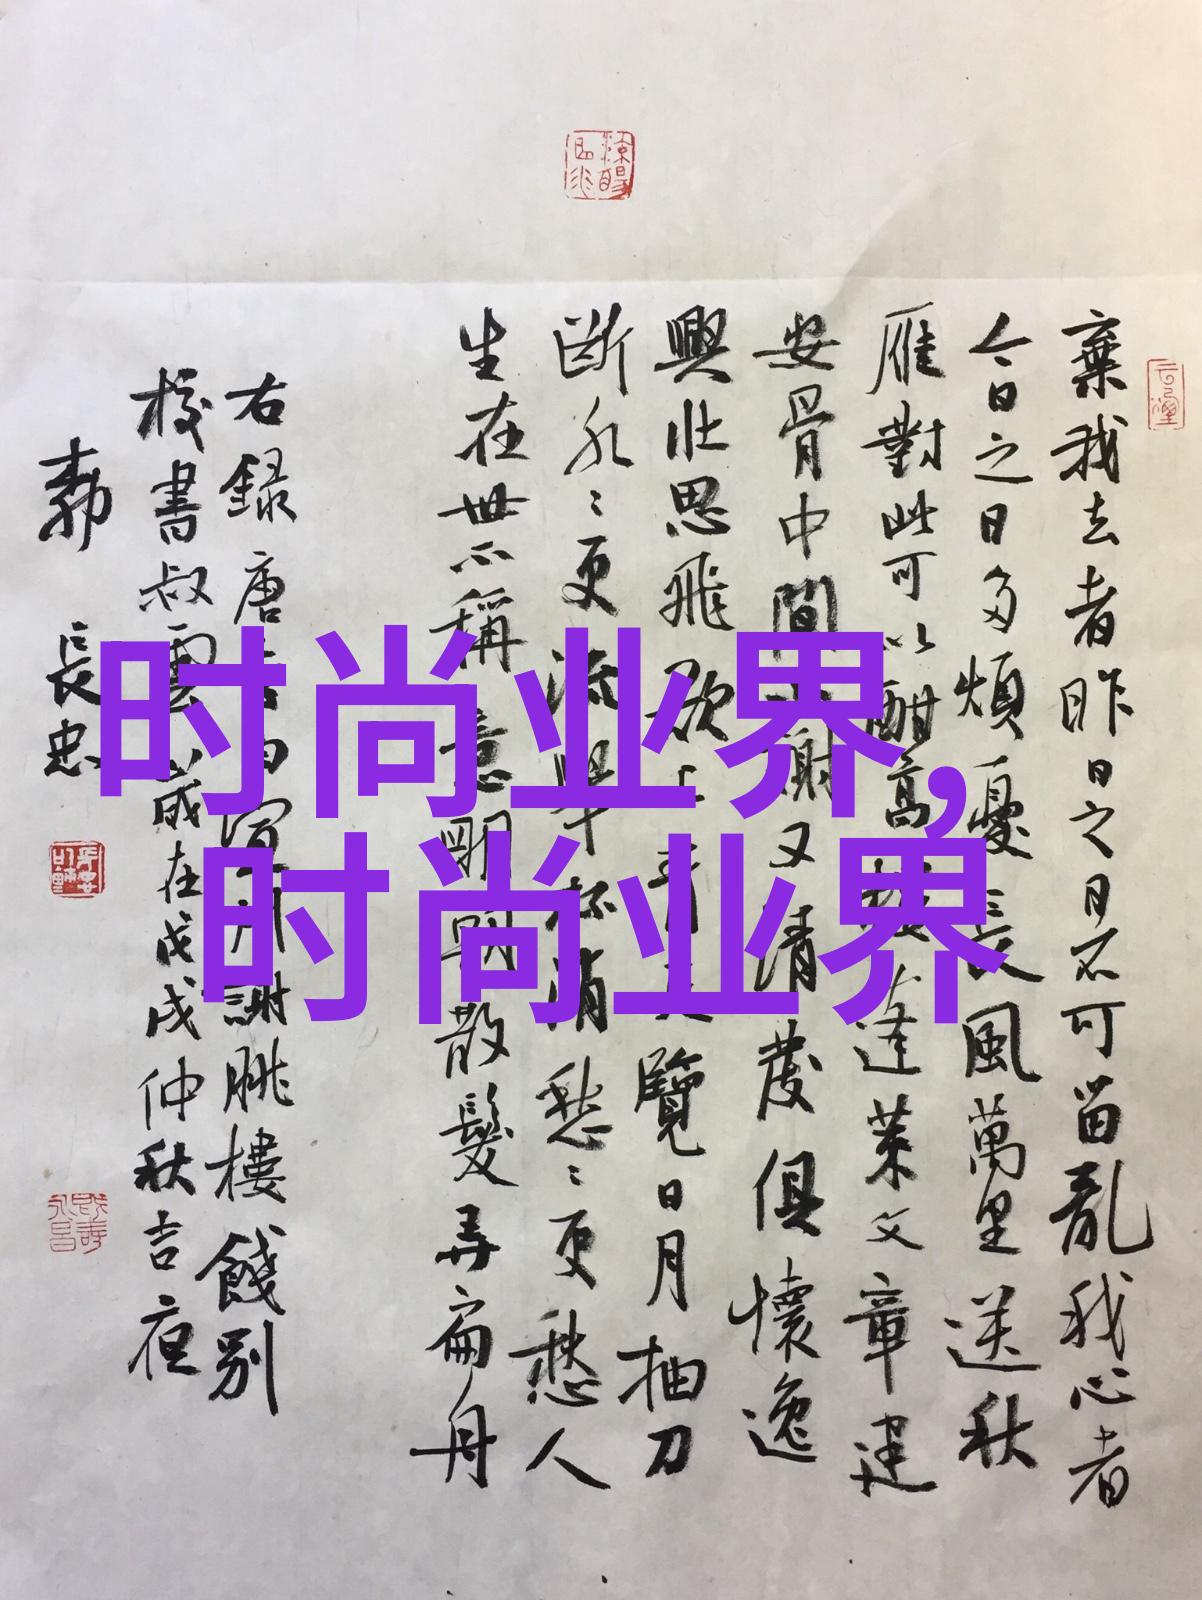 棄我去者昨日之日不可留亂我心者
今日之日多煩憂長風萬里送秋
雁對此可以酣高樓蓬萊文章建
安骨中間小謝又清發俱懷逸
興壯思飛欲上青天覽日月抽刀
斷水〻更流舉杯消愁〻更愁人
生在世不稱意明朝散髮弄扁舟
右録唐李白宣州謝朓樓餞別
校書叔雲歲在戊戌仲秋吉夜
長忠
时尚业界,
时尚业界